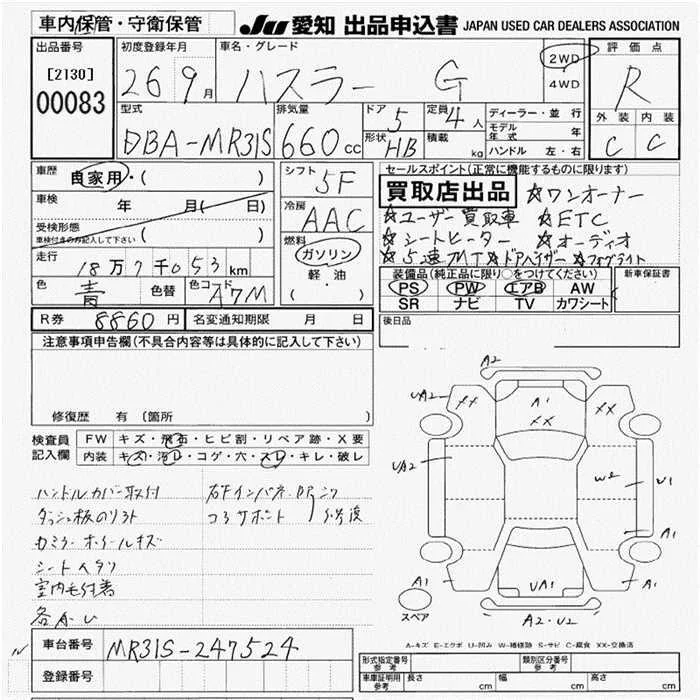 車内保管・守衛保管
JU 愛知 出品申込書 JAPAN USED CAR DEALERS ASSOCIATION
出品番号
[2130]
00083
初度登録年月
26 9月
車名・グレード
ハスラー G
2WD
4WD
評価点
R
外装 内装
C C
型式
DBA-MR31S
排気量
660 cc
ドア
5
形状
HB
定員
4人
積載
kg
ディーラー・並行
モデル年式 年
ハンドル 左・右
車歴
自家用・( )
車検
年 月( 日)
受検形態
車検付きのみ記入して下さい ( )
走行
18万7千053km
色
青
色替
色コード
A7M
シフト
5F
冷房
AAC
燃料
ガソリン
軽・油
( )
セールスポイント(正常に機能するものに限ります)
買取店出品 ☆ワンオーナー
☆ユーザー買取車 ☆ETC
☆シートヒーター ☆オーディオ
☆5速MT ☆ドアバイザー ☆フォグライト
装備品(純正品に限り○をつけてください)
PS PW エアB AW
SR ナビ TV カワシート
新車保証書
後日品
R券 8860円
名変通知期限 月 日
注意事項申告欄(不具合内容等は具体的に記入して下さい)
修復歴 有(箇所
検査員記入欄
FW キズ・飛石・ヒビ割・リペア跡・X要
内装 キズ・汚レ・コゲ・穴・スレ・キレ・破レ
ハンドルカバー取付
ダッシュ板のリフト
シートヘタリ
室内毛付着
コアサポート
A2
UA2
XX
A1
XX
XX
UA2
W2
U1
A1
A1
UA1
A1
A2・U2
スペア
A-キズ E-エクボ U-凹み W-補修跡 S-サビ C-腐食 XX-交換済
車台番号
MR31S-247524
登録番号
形式指定番号 参考
類別区分番号 参考
車庫証明用 参考 長さ cm 幅 cm 高さ cm